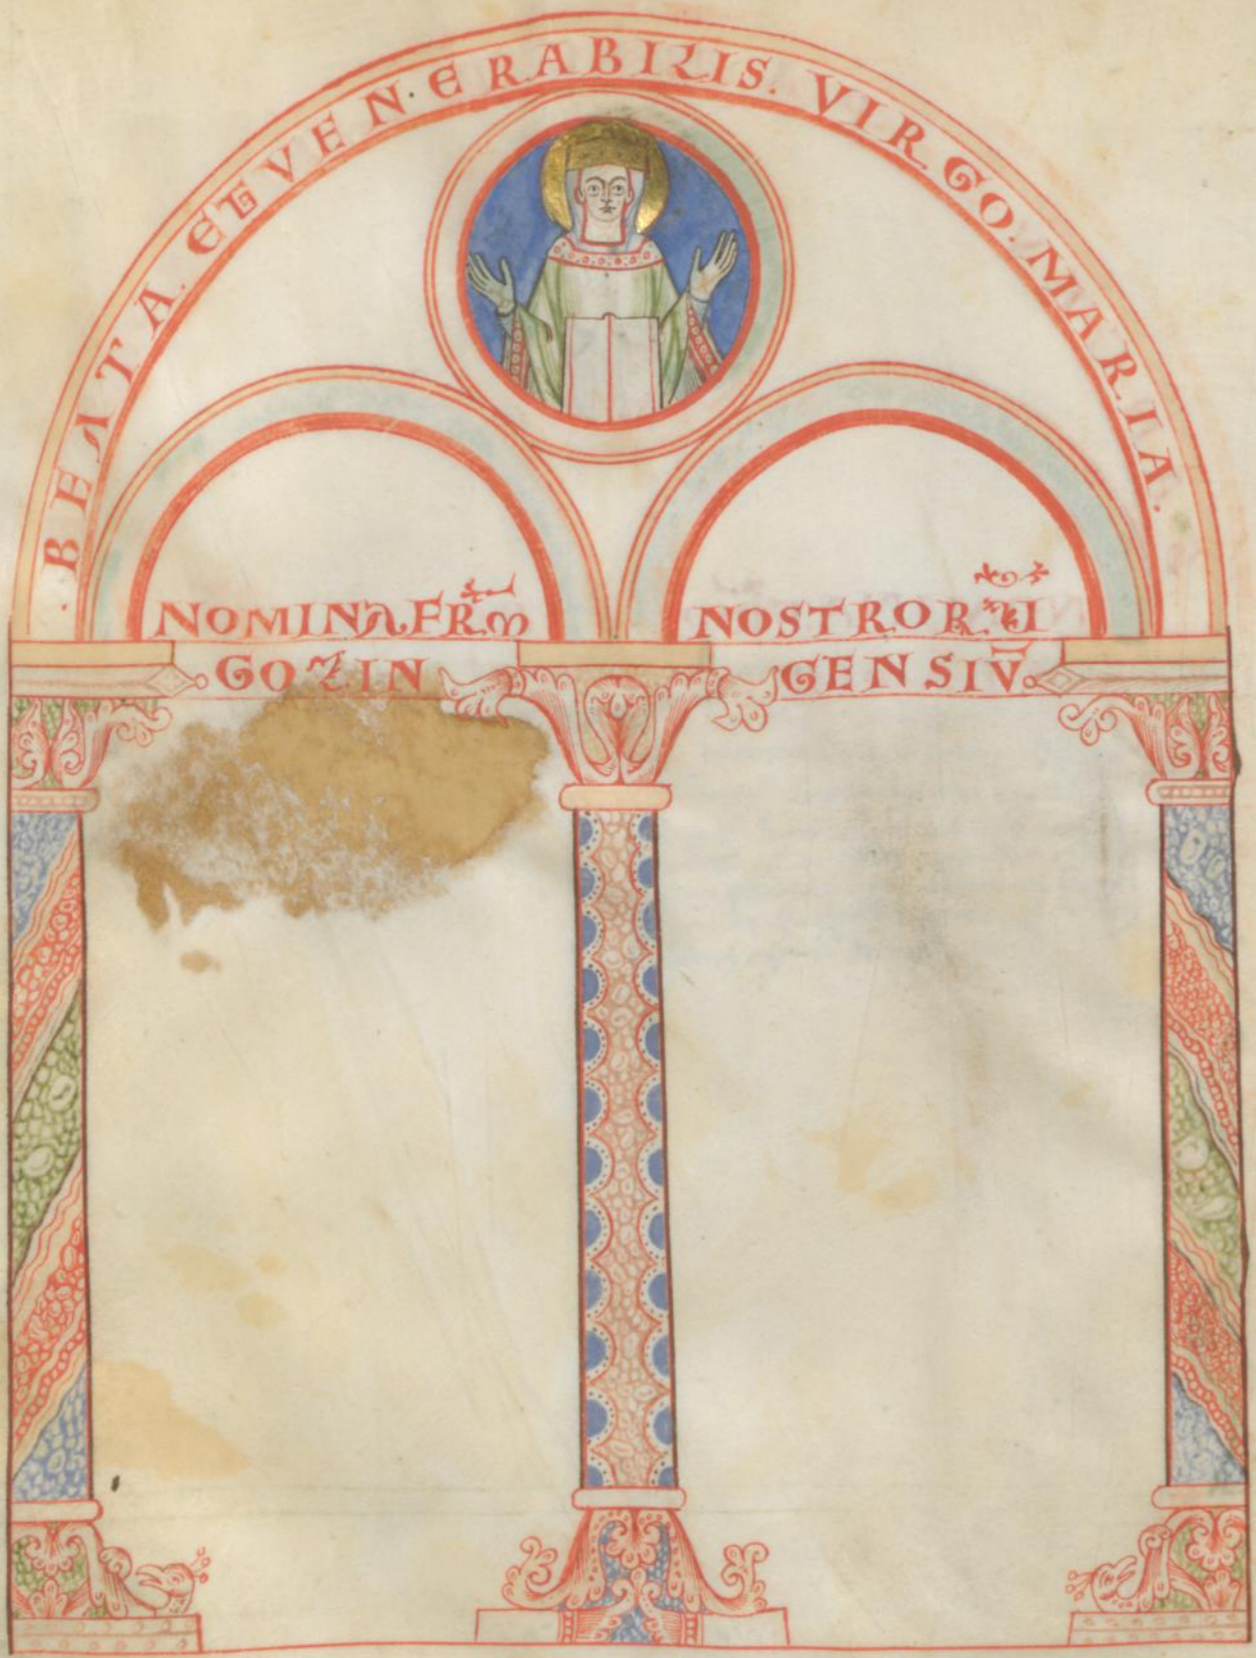 ·BEATA·ET VEN·ERABILIS·VIRGO·MARIA·
NOMINA FR̄M NOSTROR̄
GOZIN GENSIV̄·